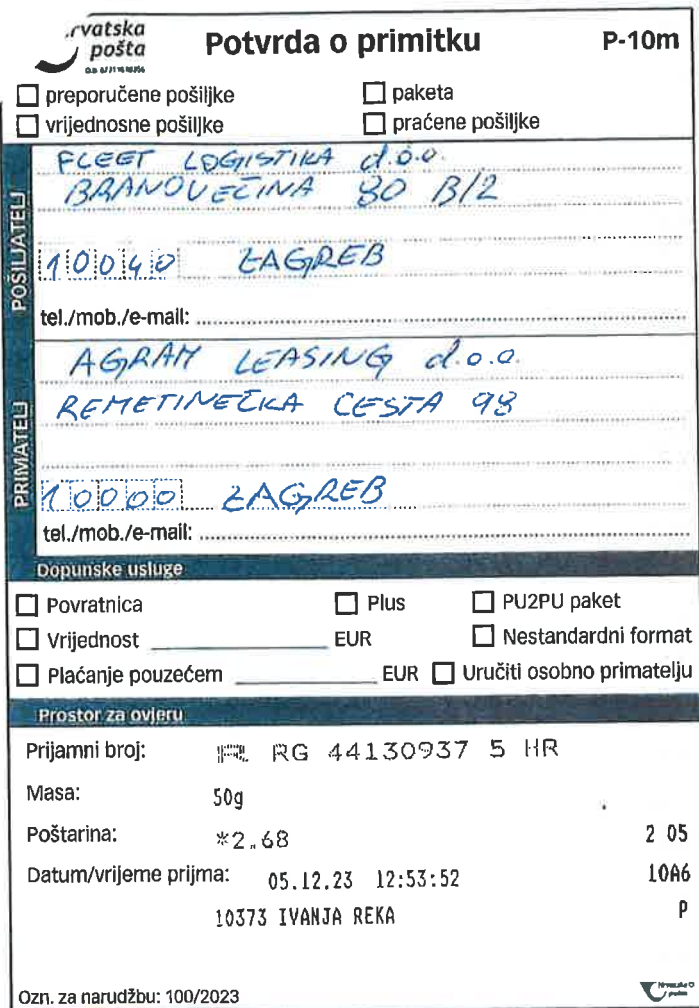 rvatska
pošta
Potvrda o primitku
P-10m
preporučene pošiljke
paketa
vrijednosne pošiljke
praćene pošiljke
POŠILJATELJ
FLEET LOGISTIKA d.o.o.
BRANOVEČINA 80 B/2
10040 ZAGREB
tel./mob./e-mail:
PRIMATELJ
AGRAM LEASING d.o.o.
REMETINEČKA CESTA 98
10000 ZAGREB
tel./mob./e-mail:
Dopunske usluge
Povratnica
Plus
PU2PU paket
Vrijednost EUR
Nestandardni format
Plaćanje pouzećem EUR
Uručiti osobno primatelju
Prostor za ovjeru
Prijamni broj: RG 44130937 5 HR
Masa: 50g
Poštarina: *2.68 2 05
Datum/vrijeme prijma: 05.12.23 12:53:52 10A6
10373 IVANJA REKA P
Ozn. za narudžbu: 100/2023